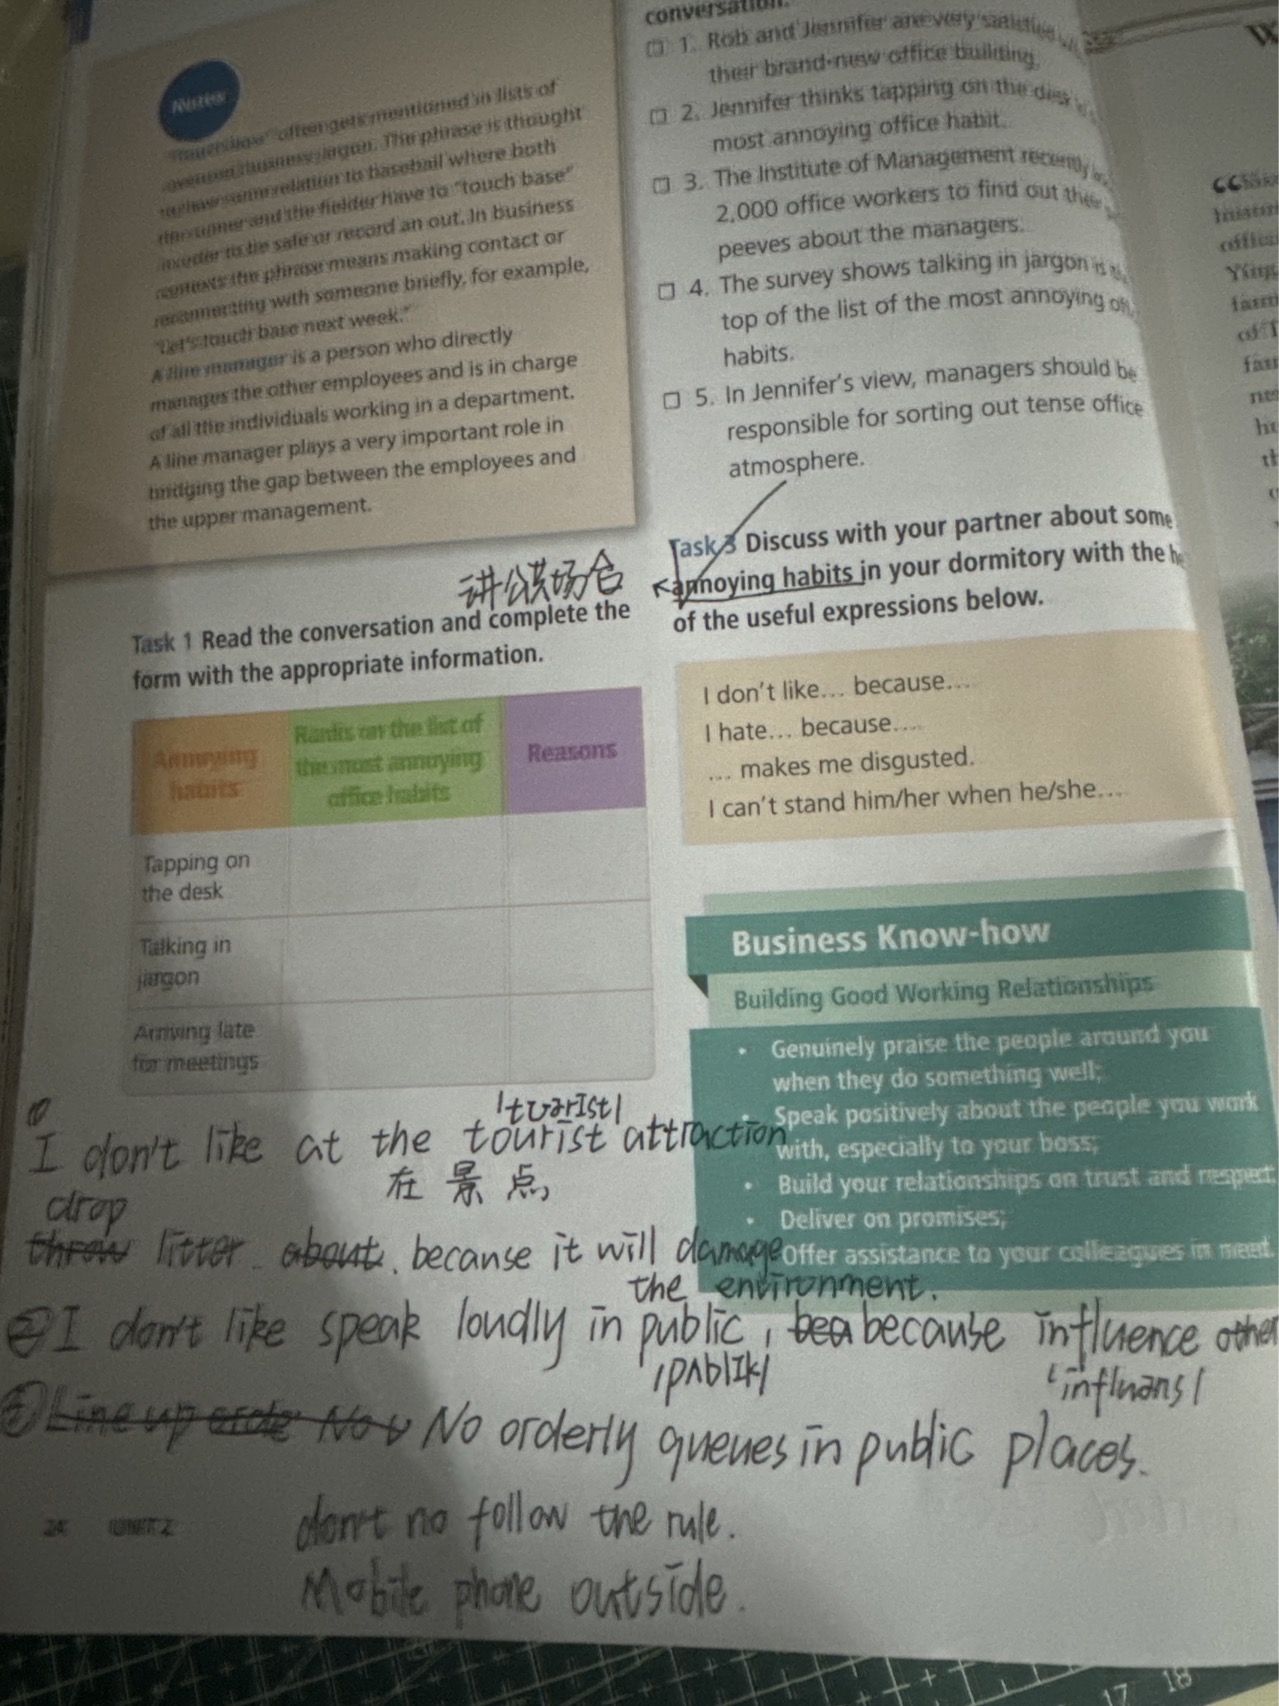 Notes
often gets mentioned in lists of
business jargon. The phrase is thought
relation to baseball where both
and the fielder have to "touch base"
to be safe or record an out. In business
contexts the phrase means making contact or
reconnecting with someone briefly, for example,
"Let's touch base next week."
A line manager is a person who directly
manages the other employees and is in charge
of all the individuals working in a department.
A line manager plays a very important role in
bridging the gap between the employees and
the upper management.
讲公共场合
Task 1 Read the conversation and complete the
form with the appropriate information.
Annoying habits
Ranks on the list of the most annoying office habits
Reasons
Tapping on
the desk
Talking in
jargon
Arriving late
for meetings
conversation.
□ 1. Rob and Jennifer are very satisfied
their brand-new office building.
□ 2. Jennifer thinks tapping on the desk
most annoying office habit.
□ 3. The Institute of Management recently
2,000 office workers to find out their
peeves about the managers.
□ 4. The survey shows talking in jargon is
top of the list of the most annoying
habits.
□ 5. In Jennifer's view, managers should be
responsible for sorting out tense office
atmosphere.
Task 3 Discuss with your partner about some
annoying habits in your dormitory with the
of the useful expressions below.
I don't like… because…
I hate… because….
… makes me disgusted.
I can't stand him/her when he/she….
Business Know-how
Building Good Working Relationships
• Genuinely praise the people around you
when they do something well;
• Speak positively about the people you work
with, especially to your boss;
• Build your relationships on trust and respect;
• Deliver on promises;
Offer assistance to your colleagues in need.
/tʊərɪst/
① I don't like at the tourist attraction
在景点
drop
throw litter about. because it will damage
the environment.
② I don't like speak loudly in public, bea because influence other
/pʌblɪk/
'influans/
③ Line up No No orderly queues in public places.
24 UNIT 2
don't no follow the rule.
Mobile phone outside.
17 18